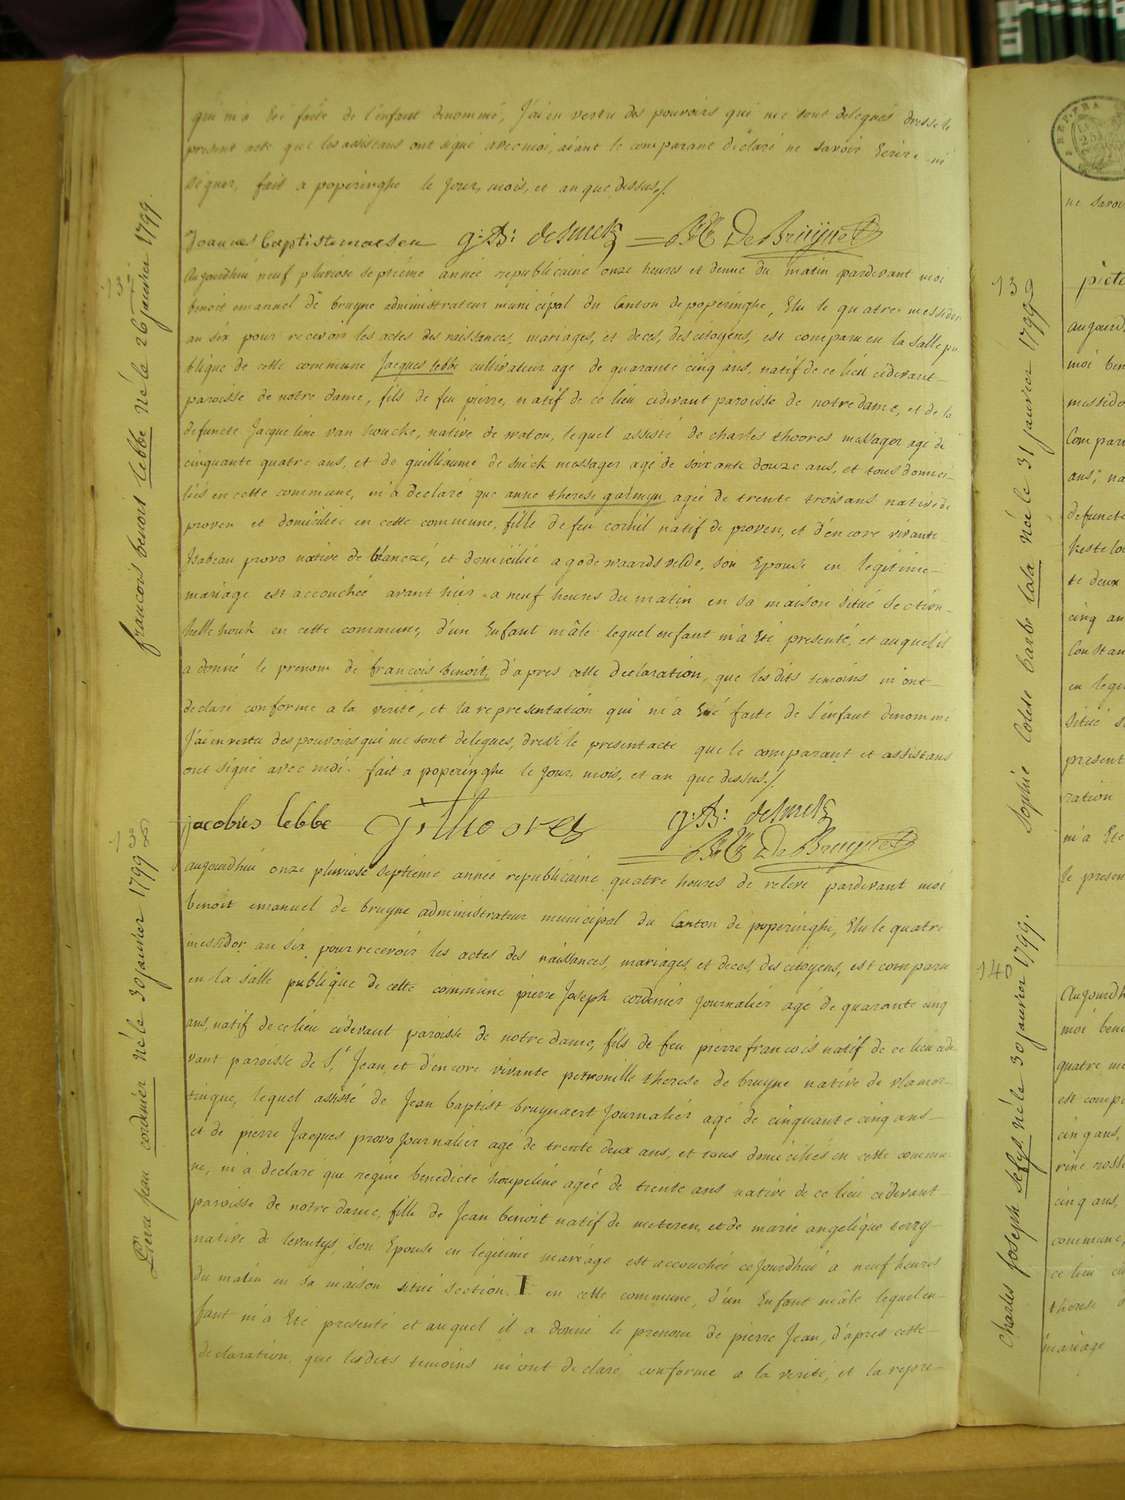 qui m'a été faite de l'enfant denommé, J'ai en vertu des pouvoirs qui me sont delegués dressé le
present acte que les assistans ont signé avec moi, aiant le comparant declaré ne savoir Ecrire ni
signer, fait a poperinghe le Jour, mois, et an que dessus./.
Joannes Baptiste maesen g: B: desmek B: E: De Bruÿne
13
francois benoit lebbe né le 26 janvier 1799
Aujourdhui neuf pluviose septiéme année republicaine onze heures et demie du matin pardevant moi
benoit emanuel de bruyne administrateur municipal du Canton de poperinghe, Elu le quatre messidor
an six pour recevoir les actes des naissances, mariages, et deces, des citoyens, est comparu en la salle pu
blique de cette commune Jacques lebbe cultivateur agé de quarante cinq ans, natif de ce lieu cidevant
paroisse de notre dame, fils de feu pierre, natif de ce lieu cidevant paroisse de notre dame, et de la
defuncte Jacqueline van houcke, native de watou, lequel assisté de charles thoores messager agé de
cinquante quatre ans, et de guilliaume de smek messager agé de soixante douze ans, et tous domici
liés en cette commune, m'a declaré que anne therese galmyn agée de trente trois ans native de
proven et domiciliée en cette commune, fille de feu cornil natif de proven, et d'encore vivante
Isabeau provo native de et domiciliée a godewaardsvelde, son Epouse en legitime
mariage est accouchée avant hier a neuf heures du matin en sa maison situé section
helle houk en cette commune, d'un Enfant mâle lequel enfant m'a Eté presenté, et auquel il
a donné le prenom de francois benoit, d'apres cette declaration, que les dits temoins m'ont
declaré conforme a la verité, et la representation qui m'a Eté faite de l'enfant denommé
J'ai en vertu des pouvoirs qui me sont delegues, dressé le present acte que le comparant et assistans
ont signé avec moi. fait a poperinghe le Jour, mois, et an que dessus./.
jacobus lebbe thoores g: B: desmek
B: E: De Bruÿne
13
Pierre jean cordenier né le 30 janvier 1799
aujourdhui onze pluviose septiéme année republicaine quatre heures de relevé pardevant moi
benoit emanuel de bruyne administrateur municipal du Canton de poperinghe, Elu le quatre
messidor an six, pour recevoir les actes des naissances, mariages, et deces, des citoyens, est comparu
en la salle publique de cette commune pierre Joseph cordenier Journalier agé de quarante cinq
ans, natif de ce lieu cidevant paroisse de notre dame, fils de feu pierre francois natif de ce lieu cide
vant paroisse de St Jean, et d'encore vivante petronelle therese de bruyne native de vlamer
tingue, lequel assisté de Jean baptist bruynaert Journalier agé de cinquante cinq ans
et de pierre Jacques provo Journalier agé de trente deux ans, et tous domiciliés en cette commu
ne, m'a declaré que regine benedicte houpeline agée de trente ans native de ce lieu cidevant
paroisse de notre dame, fille de Jean benoit natif de meteren, et de marie angelique terry
native de son Epouse en legitime mariage est accouchée cejourdhui a neuf heures
du matin en sa maison situé section I en cette commune, d'un Enfant mâle lequel en
fant m'a Eté presenté et auquel il a donné le prenom de pierre Jean, d'apres cette
declaration, que lesdits temoins m'ont declaré conforme a la verité, et la repre
13
Sophie Colete barbe lala née le 31 janvier 1799
140
Charles joseph Selys né le 30 janvier 1799.
ne savoi
piete
aujourd
moi ben
messido
Compar
ans, na
defuncte
te deux
cinq an
Constan
en legi
situé s
present
ration
m'a Eté
le presen
Aujourdh
moi beno
quatre me
est compa
cinq ans,
rine ross
cinq ans,
commune,
ce lieu ci
therese
mariage